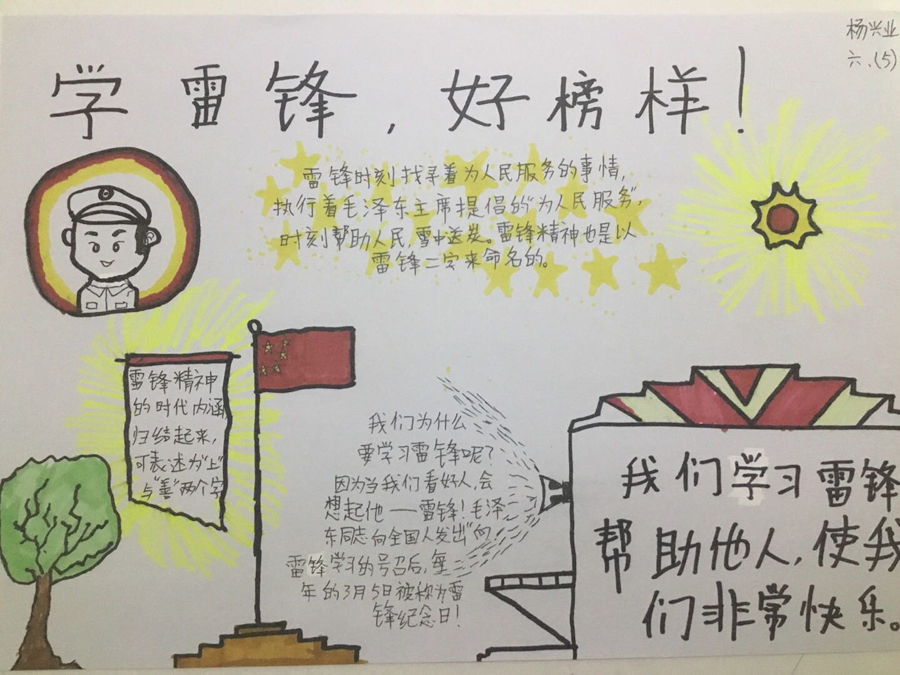 杨兴业
六.(5)
学雷锋,好榜样!
雷锋时刻找寻着为人民服务的事情,
执行着毛泽东主席提倡的“为人民服务”,
时刻帮助人民,雪中送炭。雷锋精神也是以
雷锋二字来命名的。
雷锋精神
的时代内涵
归结起来,
可表述为“上”
与“善”两个字
我们为什么
要学习雷锋呢?
因为当我们看好人,会
想起他——雷锋!毛泽
东同志向全国人发出“向
雷锋学习的号召后,每
年的3月5日被称为雷
锋纪念日!
我们学习雷锋
帮助他人,使我
们非常快乐。